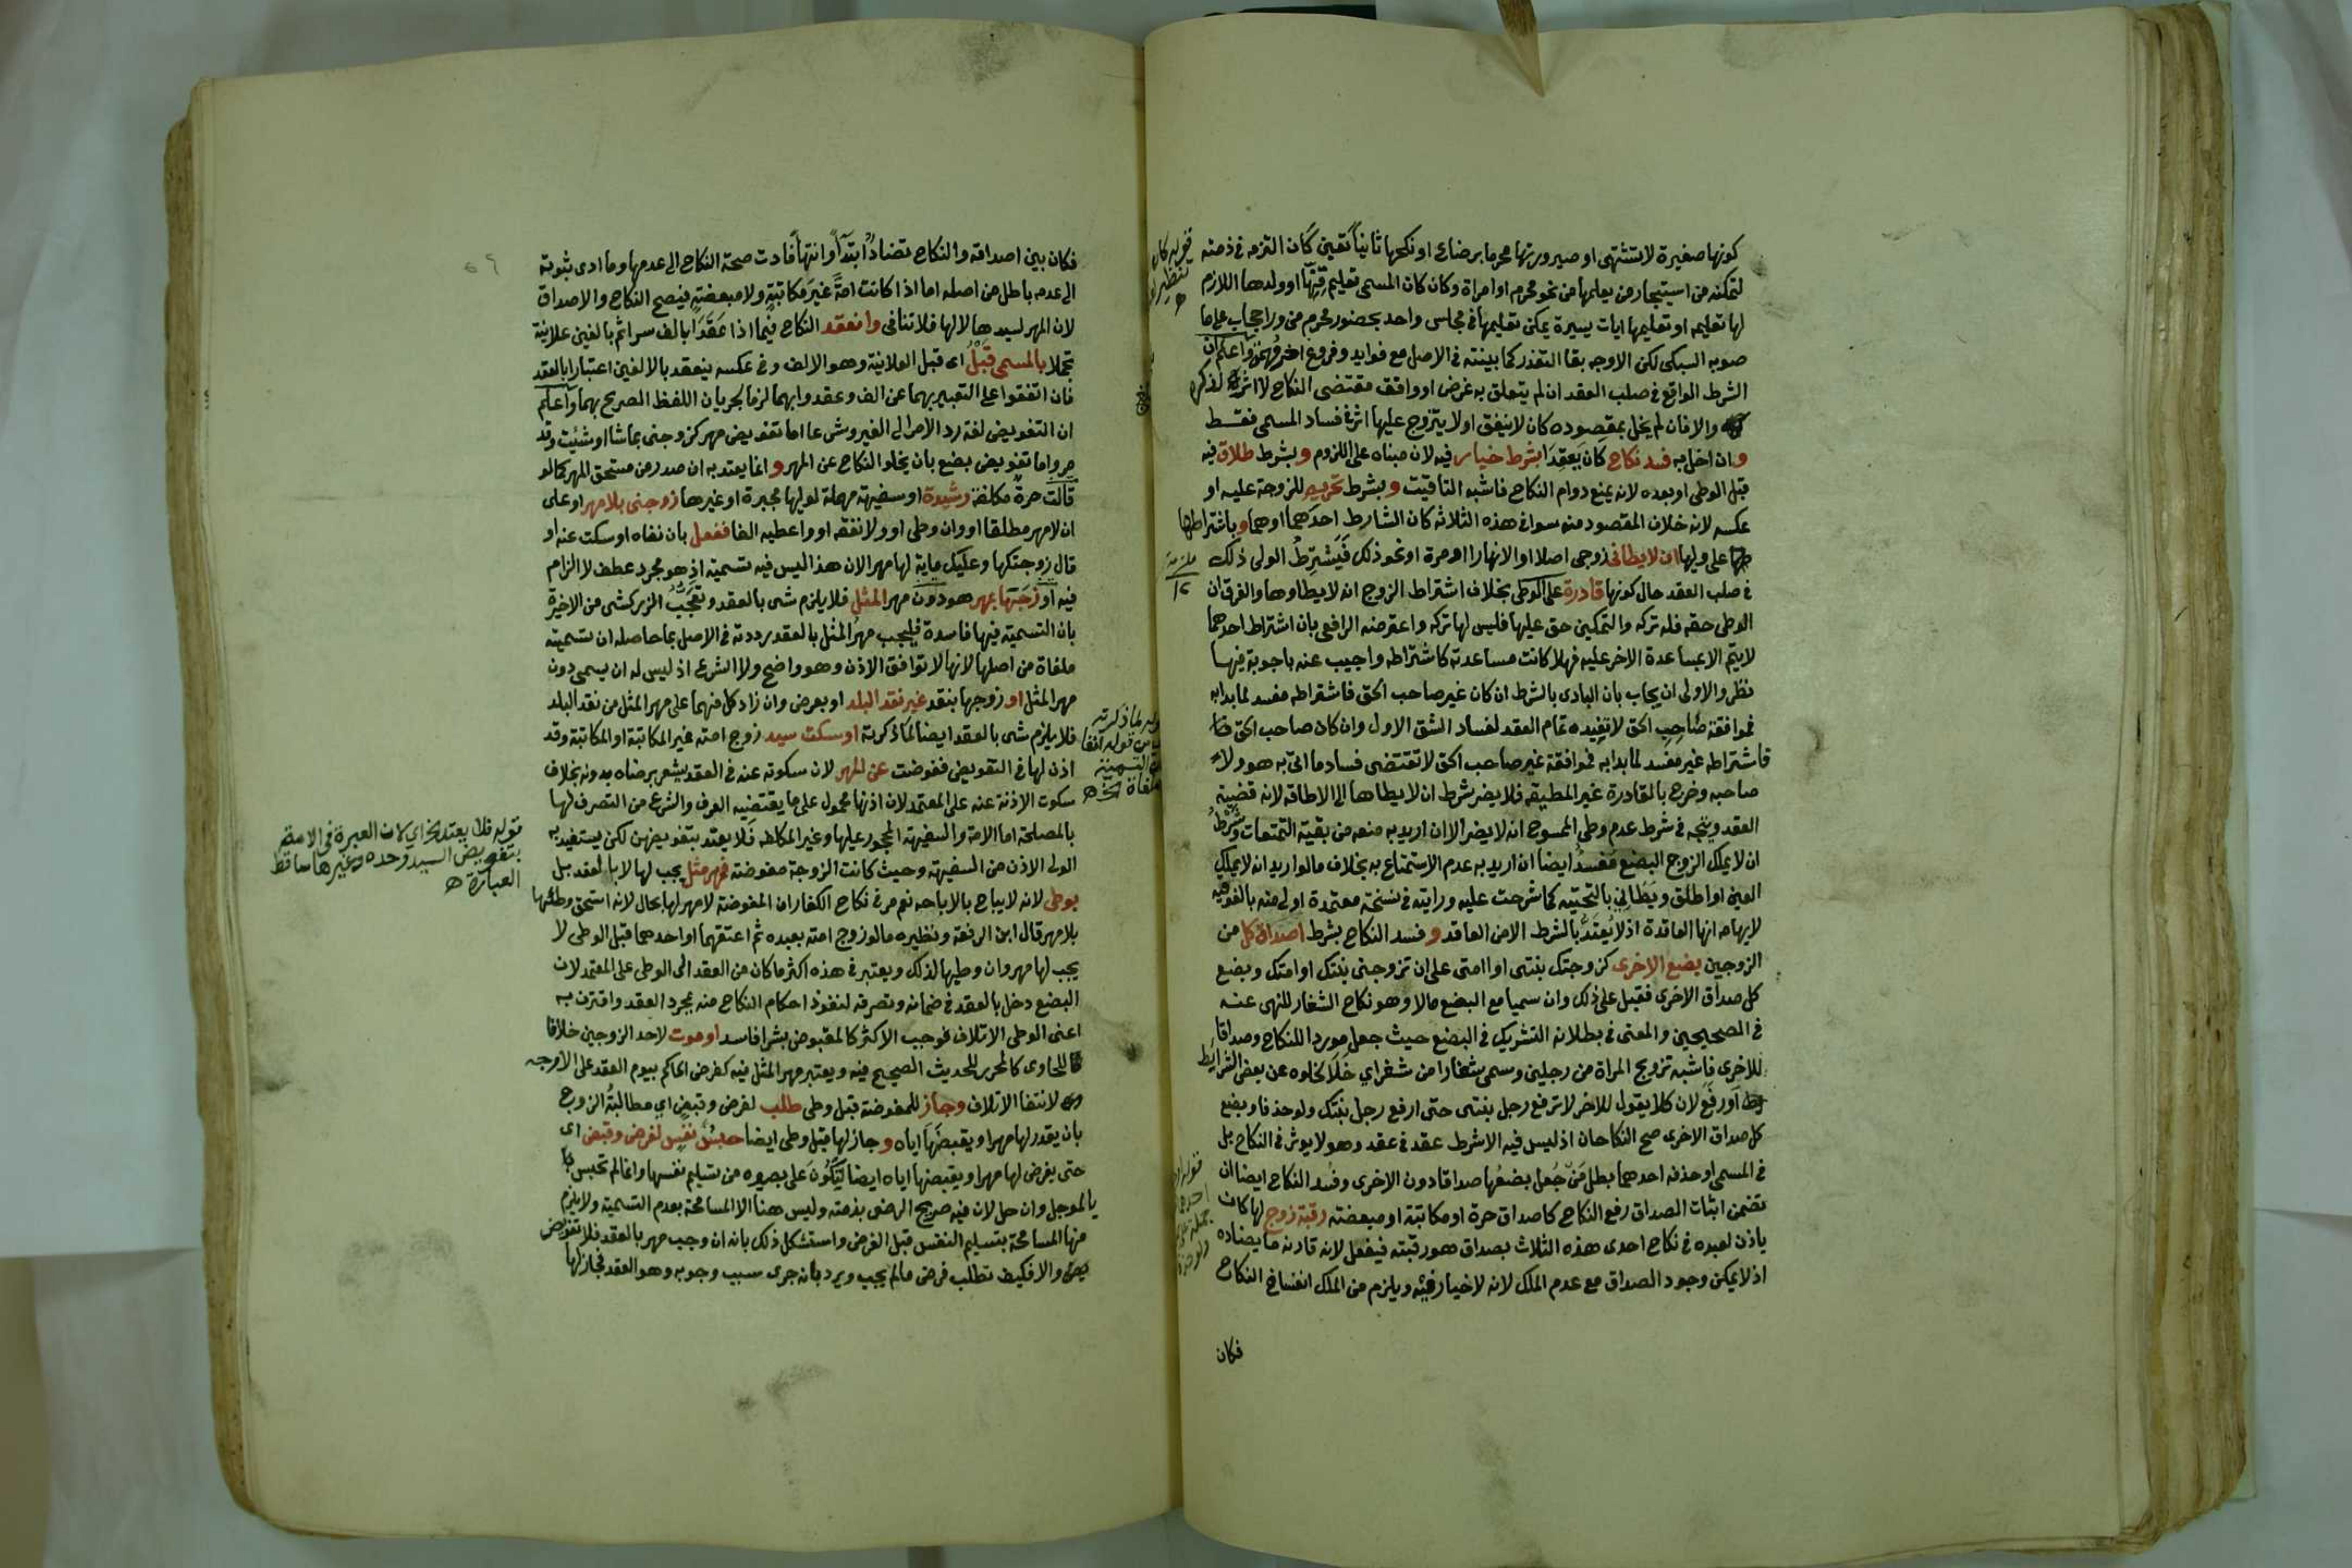 كونها صغيرة لا تشتهى او صيرورتها محرما برضاع او نكحها ثانيا تعين كان التزم في ذمته
لتمكنه من استيجار من يعلمها من نحو محرم او امراة وكان كان المسمى تعليم قنها او ولدها اللازم
لها تعليمه او تعليمها ايات يسيرة يمكن تعليمها في مجلس واحد بحضور محرم من ورا حجاب على ما
صوبه السبكي لكن الاوجه بقا التعذر كما بينته في الاصل مع فوايد وفروع اخر مهمة واعلم ان
الشرط الواقع في صلب العقد ان لم يتعلق به غرض او وافق مقتضى النكاح لا اثر لذكره
والا فان لم يخل بمقصوده كان لا ينفق او لا يتزوج عليها اثر في فساد المسمى فقط
وان اخل به فسد نكاح كان يعقدا بشرط خيار فيه لان مبناه على اللزوم وبشرط طلاق فيه
قبل الوطى او بعده لانه يمنع دوام النكاح فاشبه التاقيت وبشرط تحريم للزوجة عليه او
عكسه لانه خلاف المقصود منه سوا في هذه الثلاثة كان الشارط احدهما او هما وباشتراطها
على وليها ان لا يطانى زوجي اصلا او الا نهارا او مرة او نحو ذلك فيشترط الولى ذلك
في صلب العقد حال كونها قادرة على الوطى بخلاف اشتراط الزوج انه لا يطاوها والفرق ان
الوطى حقه فله تركه والتمكين حق عليها فليس لها تركه واعترضه الرافعي بان اشتراط احدهما
لا يتم الا بمساعدة الاخر عليه فهلا كانت مساعدته كاشتراطه واجيب عنه باجوبة فيها
نظر والاولى ان يجاب بان البادى بالشرط ان كان غير صاحب الحق فاشتراطه مفسد لما بدا به
فموافقة صاحب الحق لا تفيده تمام العقد لفساد الشق الاول وان كان صاحب الحق
فاشتراطه غير مفسد لما بدا به فموافقة غير صاحب الحق لا تقتضى فساد ما اتى به هو ولا
صاحبه وخرج بالقادرة غير المطيقه فلا يضر شرط ان لا يطاها الى الاطاقه لانه قضية
العقد ويتجه في شرط عدم وطى الممسوح انه لا يضر الا ان اريد به منعه من بقية التمتعات وشرط
ان لا يملك الزوج البضع مفسد ايضا ان اريد به عدم الاستمتاع به بخلاف ما لو اريد انه لا يملك
العين او اطلق ويطاني بالتحتيه كما شرحت عليه ورايته في نسخة معتمدة اولى منه بالفوقيه
لايهامه انها العاقدة اذ لا يعتد بالشرط الا من العاقد وفسد النكاح بشرط اصداق كل من
الزوجين بضع الاخرى كزوجتك بنتى او امتى على ان تزوجني بنتك او امتك وبضع
كل صداق الاخرى فقبل على ذلك وان سميا مع البضع مالا وهو نكاح الشغار للنهى عنه
في الصحيحين والمعنى في بطلانه التشريك في البضع حيث جعل موردا للنكاح وصداقا
للاخرى فاشبه تزويج المراة من رجلين وسمى شغارا من شغر اي خلا لخلوه عن بعض الشرايط
او رفع لان كلا يقول للاخر لا ترفع رجل بنتى حتى ارفع رجل بنتك ولو حذفا وبضع
كل صداق الاخرى صح النكاحان اذ ليس فيه الا شرط عقد في عقد وهو لا يوثر في النكاح بل
في المسمى او حذفه احدهما بطل من جعل بضعها صداقا دون الاخرى وفسد النكاح ايضا ان
تضمن اثبات الصداق رفع النكاح كاصداق حرة او مكاتبة او مبعضة رقبة زوج لها كان
ياذن لعبده في نكاح احدى هذه الثلاث بصداق هو رقبته فيفعل لانه قارنه ما يضاده
اذ لا يمكن وجود الصداق مع عدم الملك لانه لا خيار فيه ويلزم من الملك انفساخ النكاح
فكان
فكان بين اصداقه والنكاح تضاد ابتدا وانتها فادت صحة النكاح الى عدمها وما ادى ثبوته
الى عدمه باطل من اصله اما اذا كانت امة غير مكاتبة ولا مبعضة فيصح النكاح والاصداق
لان المهر لسيدها لا لها فلا تنافى وانعقد النكاح فيما اذا عقدا بالف سرا ثم بالفين علانية
تجملا بالمسمى قبل اى قبل العلانية وهو الالف وفي عكسه ينعقد بالالفين اعتبارا بالعقد
فان اتفقوا على التعبير بهما عن الف وعقدوا بهما لزما لجريان اللفظ الصريح بهما واعلم
ان التفويض لغة رد الامر الى الغير وشرعا اما تفويض مهر كزوجنى بما شا او شئت وقد
مر واما تفويض بضع بان يخلو النكاح عن المهر وانما يعتد به ان صدر من مستحق المهر كما لو
قالت حرة مكلفة رشيدة او سفيهة مهملة لوليها مجبرة او غيرها زوجنى بلا مهر او على
ان لا مهر مطلقا او وان وطى او ولا نفقه او واعطيه الفا ففعل بان نفاه او سكت عنه او
قال زوجتكها وعليك ماية لها مهرا لان هذا ليس فيه تسمية اذ هو مجرد عطف لا الزام
فيه او زوجها بمهر هو دون مهر المثل فلا يلزم شى بالعقد وتعجب الزركشى من الاخيرة
بان التسمية فيها فاسدة فليجب مهر المثل بالعقد رددته في الاصل بما حاصله ان تسميته
ملغاة من اصلها لانها لا توافق الاذن وهو واضح ولا الشرع اذ ليس له ان يسمى دون
مهر المثل او زوجها بنقد غير نقد البلد او بعرض وان زاد كل منهما على مهر المثل من نقد البلد
فلا يلزم شى بالعقد ايضا لما ذكرته او سكت سيد زوج امته غير المكاتبة او المكاتبة وقد
اذن لها في التفويض ففوضت عن المهر لان سكوته عنه في العقد يشعر برضاه بدونه بخلاف
سكوت الاذنة عنه على المعتمد لان اذنها محمول على ما يقتضيه العرف والشرع من التصرف لها
بالمصلحة اما الامة والسفيهة المحجور عليها وغير المكلفه فلا يعتد بتفويضهن لكن يستفيد به
الولى الاذن من السفيهة وحيث كانت الزوجة مفوضة فمهر مثل يجب لها لا بالعقد بل
بوطى لانه لا يباح بالاباحه نعم مر في نكاح الكفار ان المفوضة لا مهر لها بحال لانه استحق وطئها
بلا مهر قال ابن الرفعة ونظيره ما لو زوج امته بعبده ثم اعتقهما او احدهما قبل الوطى لا
يجب لها مهر وان وطيها لذلك ويعتبر في هذه اكثر ما كان من العقد الى الوطى على المعتمد لان
البضع دخل بالعقد في ضمانه وتصرفه لنفوذ احكام النكاح منه بمجرد العقد واقترن به
اعنى الوطى الاتلاف فوجب الاكثر كالمقبوض بشرا فاسد او موت لاحد الزوجين خلافا
للحاوى كالمحرر للحديث الصحيح فيه ويعتبر مهر المثل فيه كفرض الحاكم بيوم العقد على الاوجه
لانتفا الاتلاف وجاز للمفوضة قبل وطى طلب لفرض وقبض اي مطالبة الزوج
بان يقدر لها مهرا ويقبضها اياه وجاز لها قبل وطى ايضا حبس نفس لفرض وقبض اى
حتى يفرض لها مهرا ويقبضها اياه ايضا لتكون على بصيره من تسليم نفسها وانما لم تحبس
بالموجل وان حل لان فيه صريح الرضى بذمته وليس هنا الا المسامحة بعدم التسمية ولا يلزم
منها المسامحة بتسليم النفس قبل الفرض واستشكل ذلك بانه ان وجب مهر بالعقد فلا تفويض
والا فكيف تطلب فرض ما لم يجب ويرد بانه جرى سبب وجوبه وهو العقد فجاز لها
قوله فلا يعتد الخ اي لان العبرة في الامة
بتفويض السيد وحده وغيرها ساقط
العبارة ه